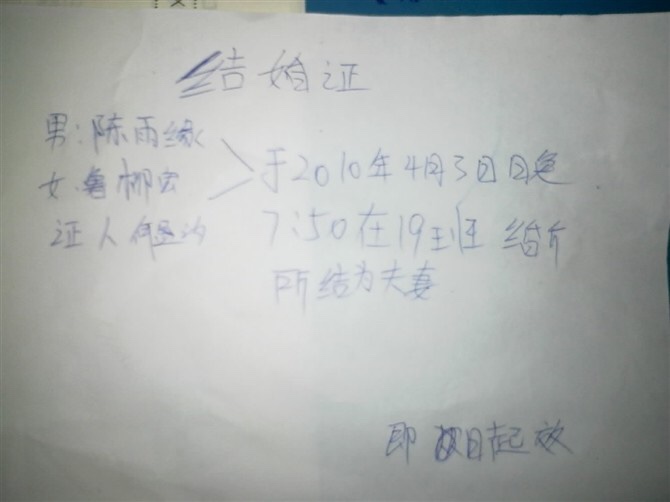 结婚证
男:陈雨缘
女 鲁柳宏
于2010年4月3日
证人
7:50在19班 结
所结为夫妻
即 日起效